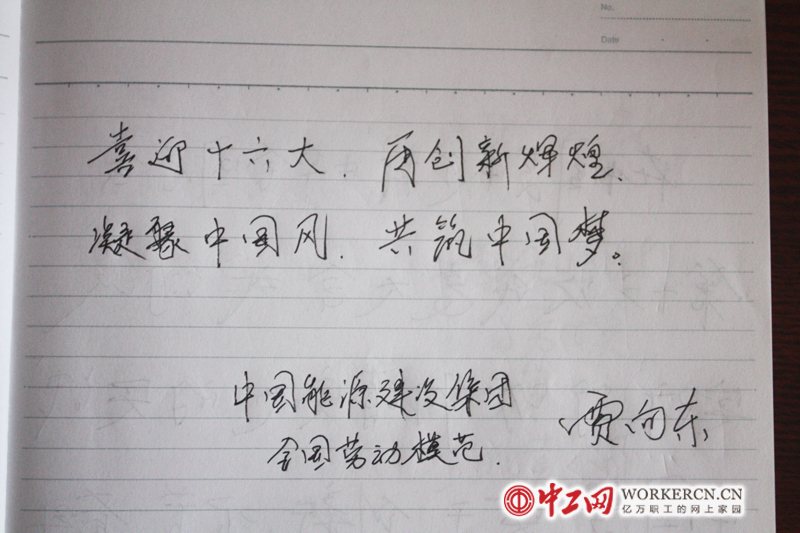 No.
Date
喜迎十六大，再创新辉煌、
凝聚中国风，共筑中国梦。
中国能源建设集团
全国劳动模范.
贾向东
中工网 WORKERCN.CN
亿万职工的网上家园